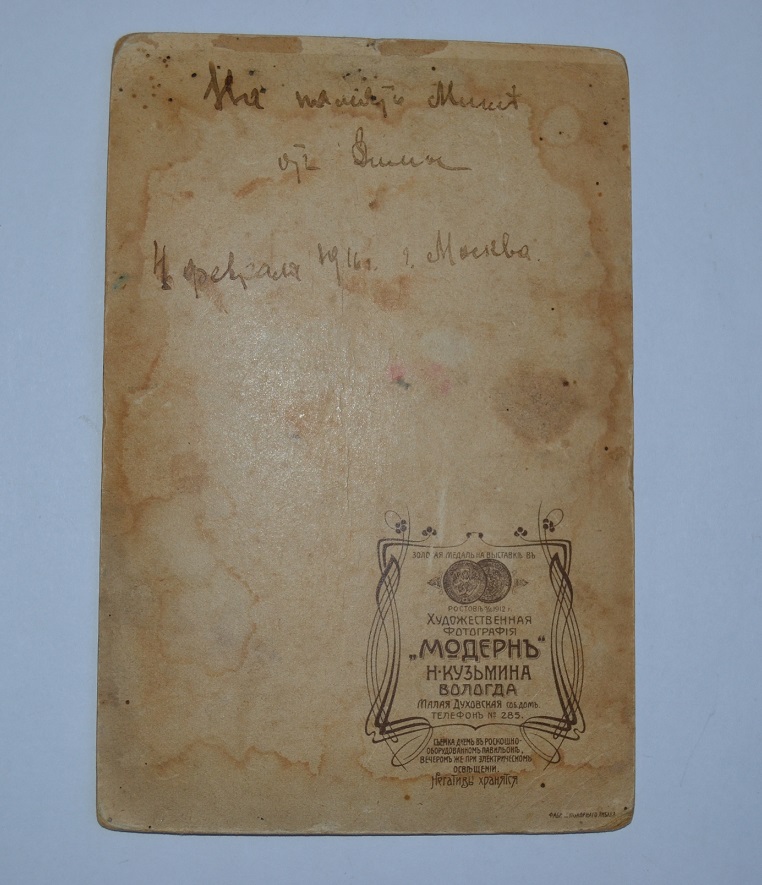 На память Мишѣ
отъ
4 февраля 1916 г. г. Москва.
ЗОЛОТАЯ МЕДАЛЬ НА ВЫСТАВКѢ ВЪ
РОСТОВѢ Н/Д 1912 г.
ХУДОЖЕСТВЕННАЯ
ФОТОГРАФІЯ
„МОДЕРНЪ“
Н·КУЗЬМИНА
ВОЛОГДА
МАЛАЯ ДУХОВСКАЯ СОБ.ДОМЪ.
ТЕЛЕФОНЪ № 285.
СЪЕМКА ДНЕМЪ ВЪ РОСКОШНО-
ОБОРУДОВАННОМЪ ПАВИЛЬОНѢ,
ВЕЧЕРОМЪ ЖЕ ПРИ ЭЛЕКТРИЧЕСКОМЪ
ОСВѢЩЕНІИ.
Негативы хранятся